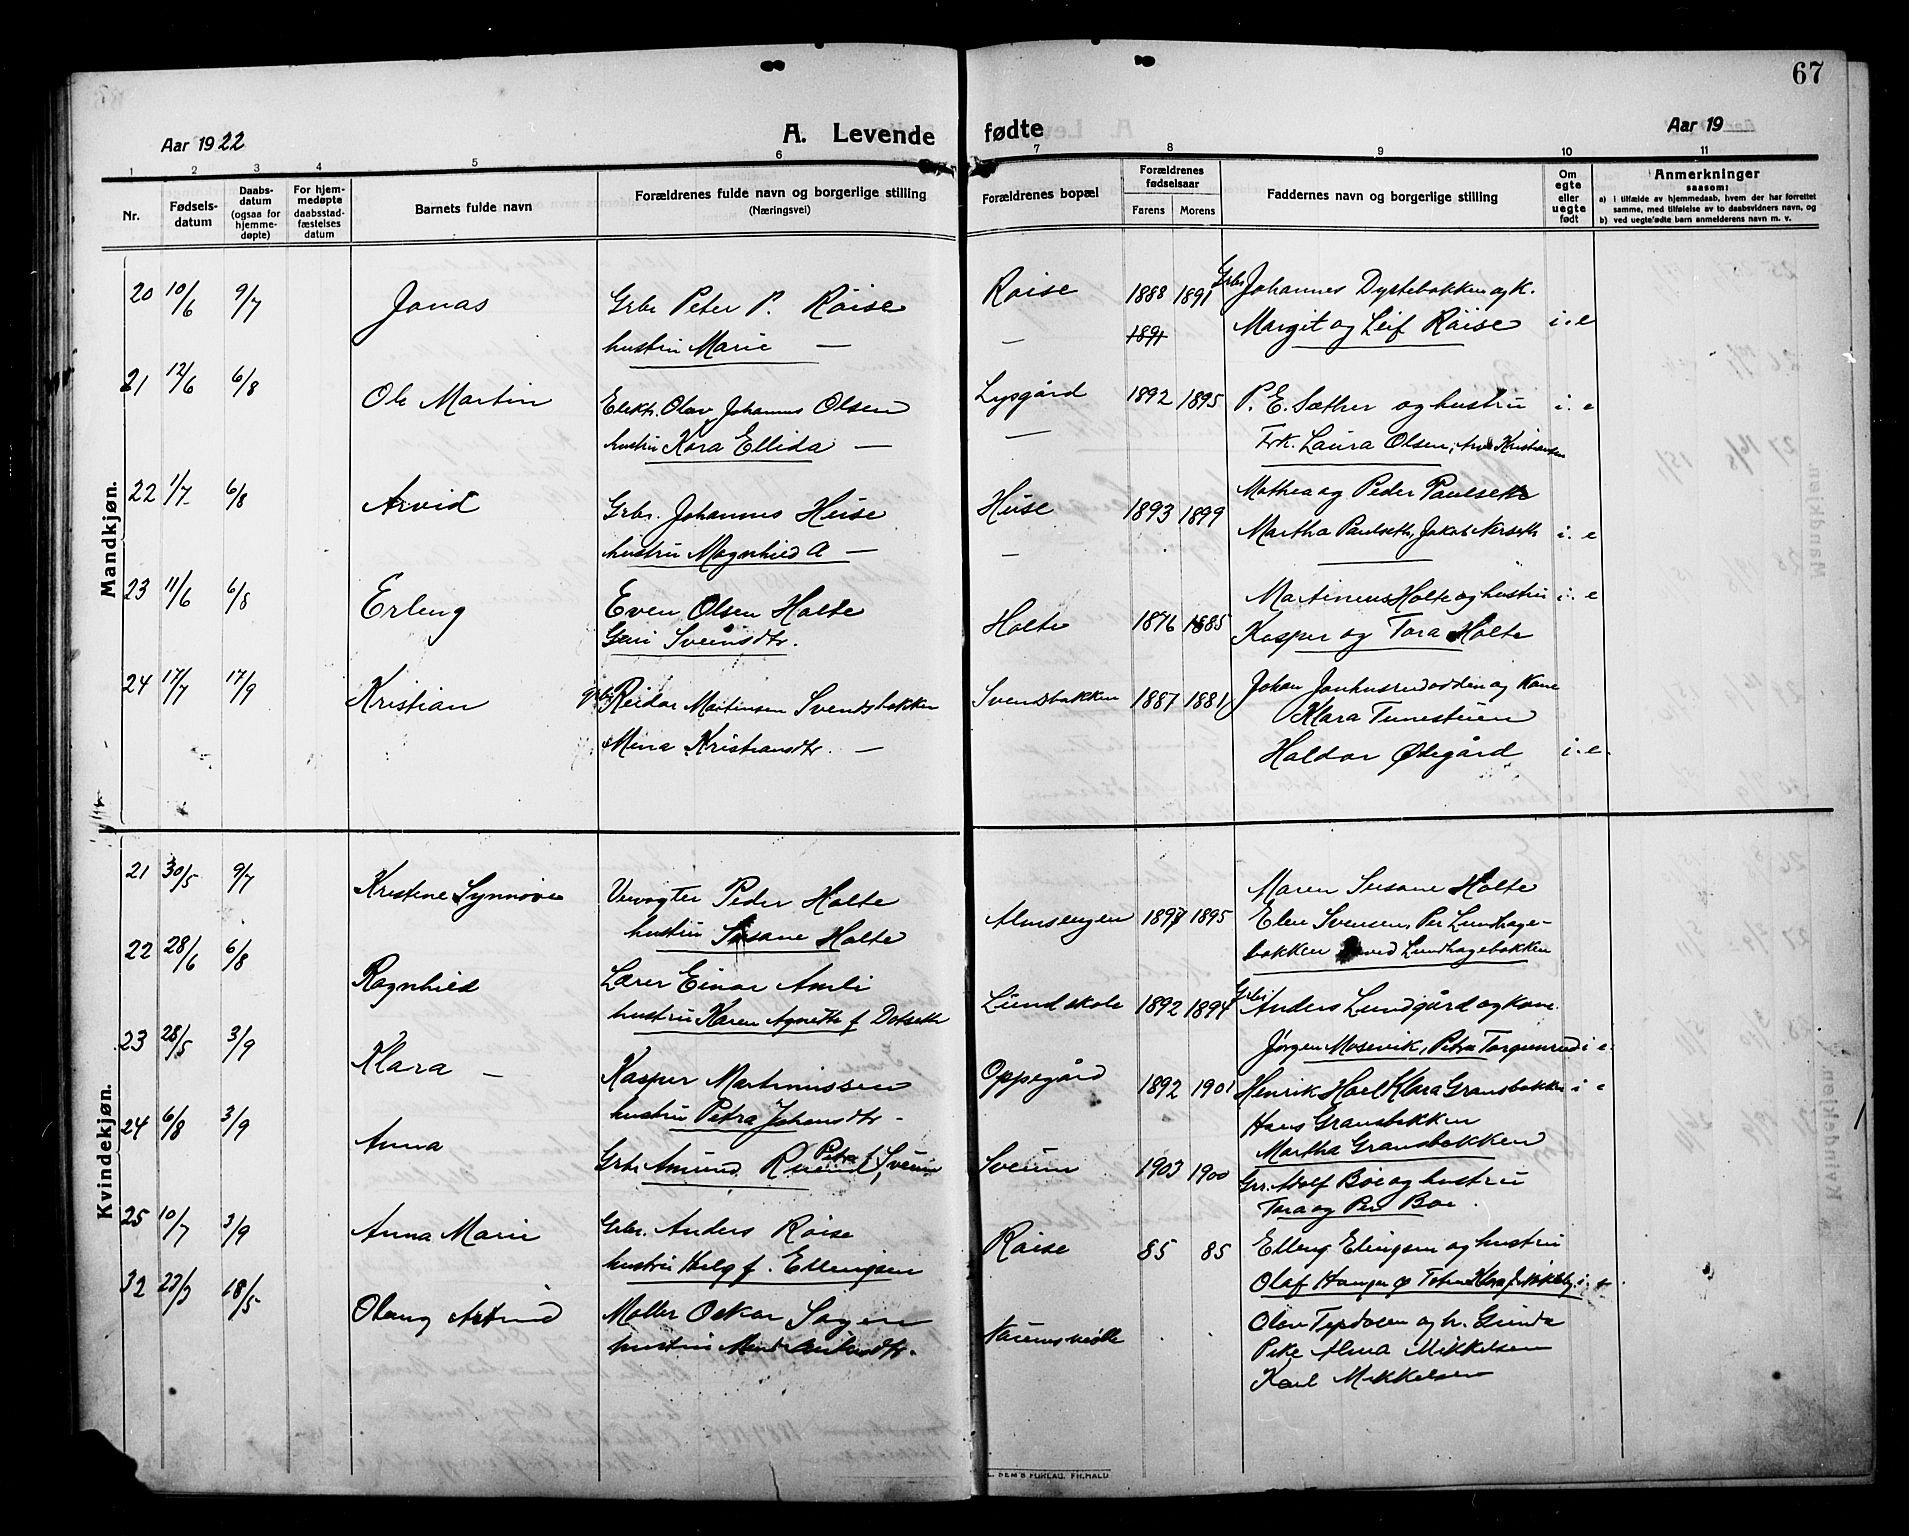 67
Aar 1922
A. Levende fødte
Aar 19
1 2 3 4 5 6 7 8 9 10 11
Nr.
Fødsels-
datum
Daabs-
datum
(ogsaa for
hjemme-
døpte)
For hjem-
medøpte
daabsstad-
fæstelses
datum
Barnets fulde navn
Forældrenes fulde navn og borgerlige stilling
(Næringsvei)
Forældrenes bopæl
Forældrenes
fødselsaar
Farens Morens
Faddernes navn og borgerlige stilling
Om
egte
eller
uegte
født
Anmerkninger
saasom:
a) i tilfælde av hjemmedaab, hvem der har forrettet
samme, med tilføielse av to daabsvidners navn, og
b) ved uegtefødte barn anmelderens navn m. v.
Mandkjøn.
20 10/6 9/7 Jonas Grbr Peter P. Röise Röise 1888 1891 Grbr Johannes Dystebakken og k.
hustru Marie — — 1891 Margit og Leif Röise i. e
21 12/6 6/8 Ole Martin Elektr. Olav Johannes Olsen Lysgård 1892 1895 P. E. Sæther og hustru i. e
hustru Kora Ellida — — Frk. Laura Olsen, Kristiansen
22 1/7 6/8 Arvid Grbr. Johannes Huse Huse 1893 1899 Mathea og Peder Paulseth
hustru Magnhild A — — Martha Paulseth, Jakob Nerseth i. e
23 11/6 6/8 Erling Even Olsen Holte Holte 1876 1885 Martinus Holte og hustru i. e
Guri Svensdtr. Kasper og Tora Holte
24 17/7 17/9 Kristian Grbr Reidar Martinsen Svendsbakken Svendsbakken 1887 1881 Johan Janhusrudodden og Kone
Mina Kristiansdtr. — Klara Tunestuen
Haldor Ødegård i. e.
Kvindekjøn.
21 30/5 9/7 Kristine Synnöve Vevogter Peder Holte Almsengen 1897 1895 Maren Susane Holte
hustru Susane Holte Elen Svensen, Per Lundhage-
bakken Lundhagebakken
22 28/6 6/8 Ragnhild Lærer Einar Amli Lundskole 1892 1894 Grbr Anders Lundgård og kone
hustru Karen Agnethe f. Dotseth Jörgen Mosevik, Petra i e.
23 28/5 3/9 Klara — Kasper Martinussen Oppegård 1892 1901 Henrik Hoel Klara Gransbakken i e
hustru Petra Johansdtr. Hans Gransbakken
Martha Gransbakken
24 6/8 3/9 Anna Grbr Amund Petra f. Sveum Sveum 1903 1900 Gr. Adolf Böe og hustru
Tora og Per Boe.
25 10/7 3/9 Anna Marie Grbr. Anders Röise Röise 85 85 Elling Elingsen og hustru
hustru Helga f. Ellingsen Olaf
32 22/3 18/5 Olaug Astrid Möller Oskar Sagen Olav og h. Gunda
hustru Pike Alma Mikkelsen
Karl Mikkelsen